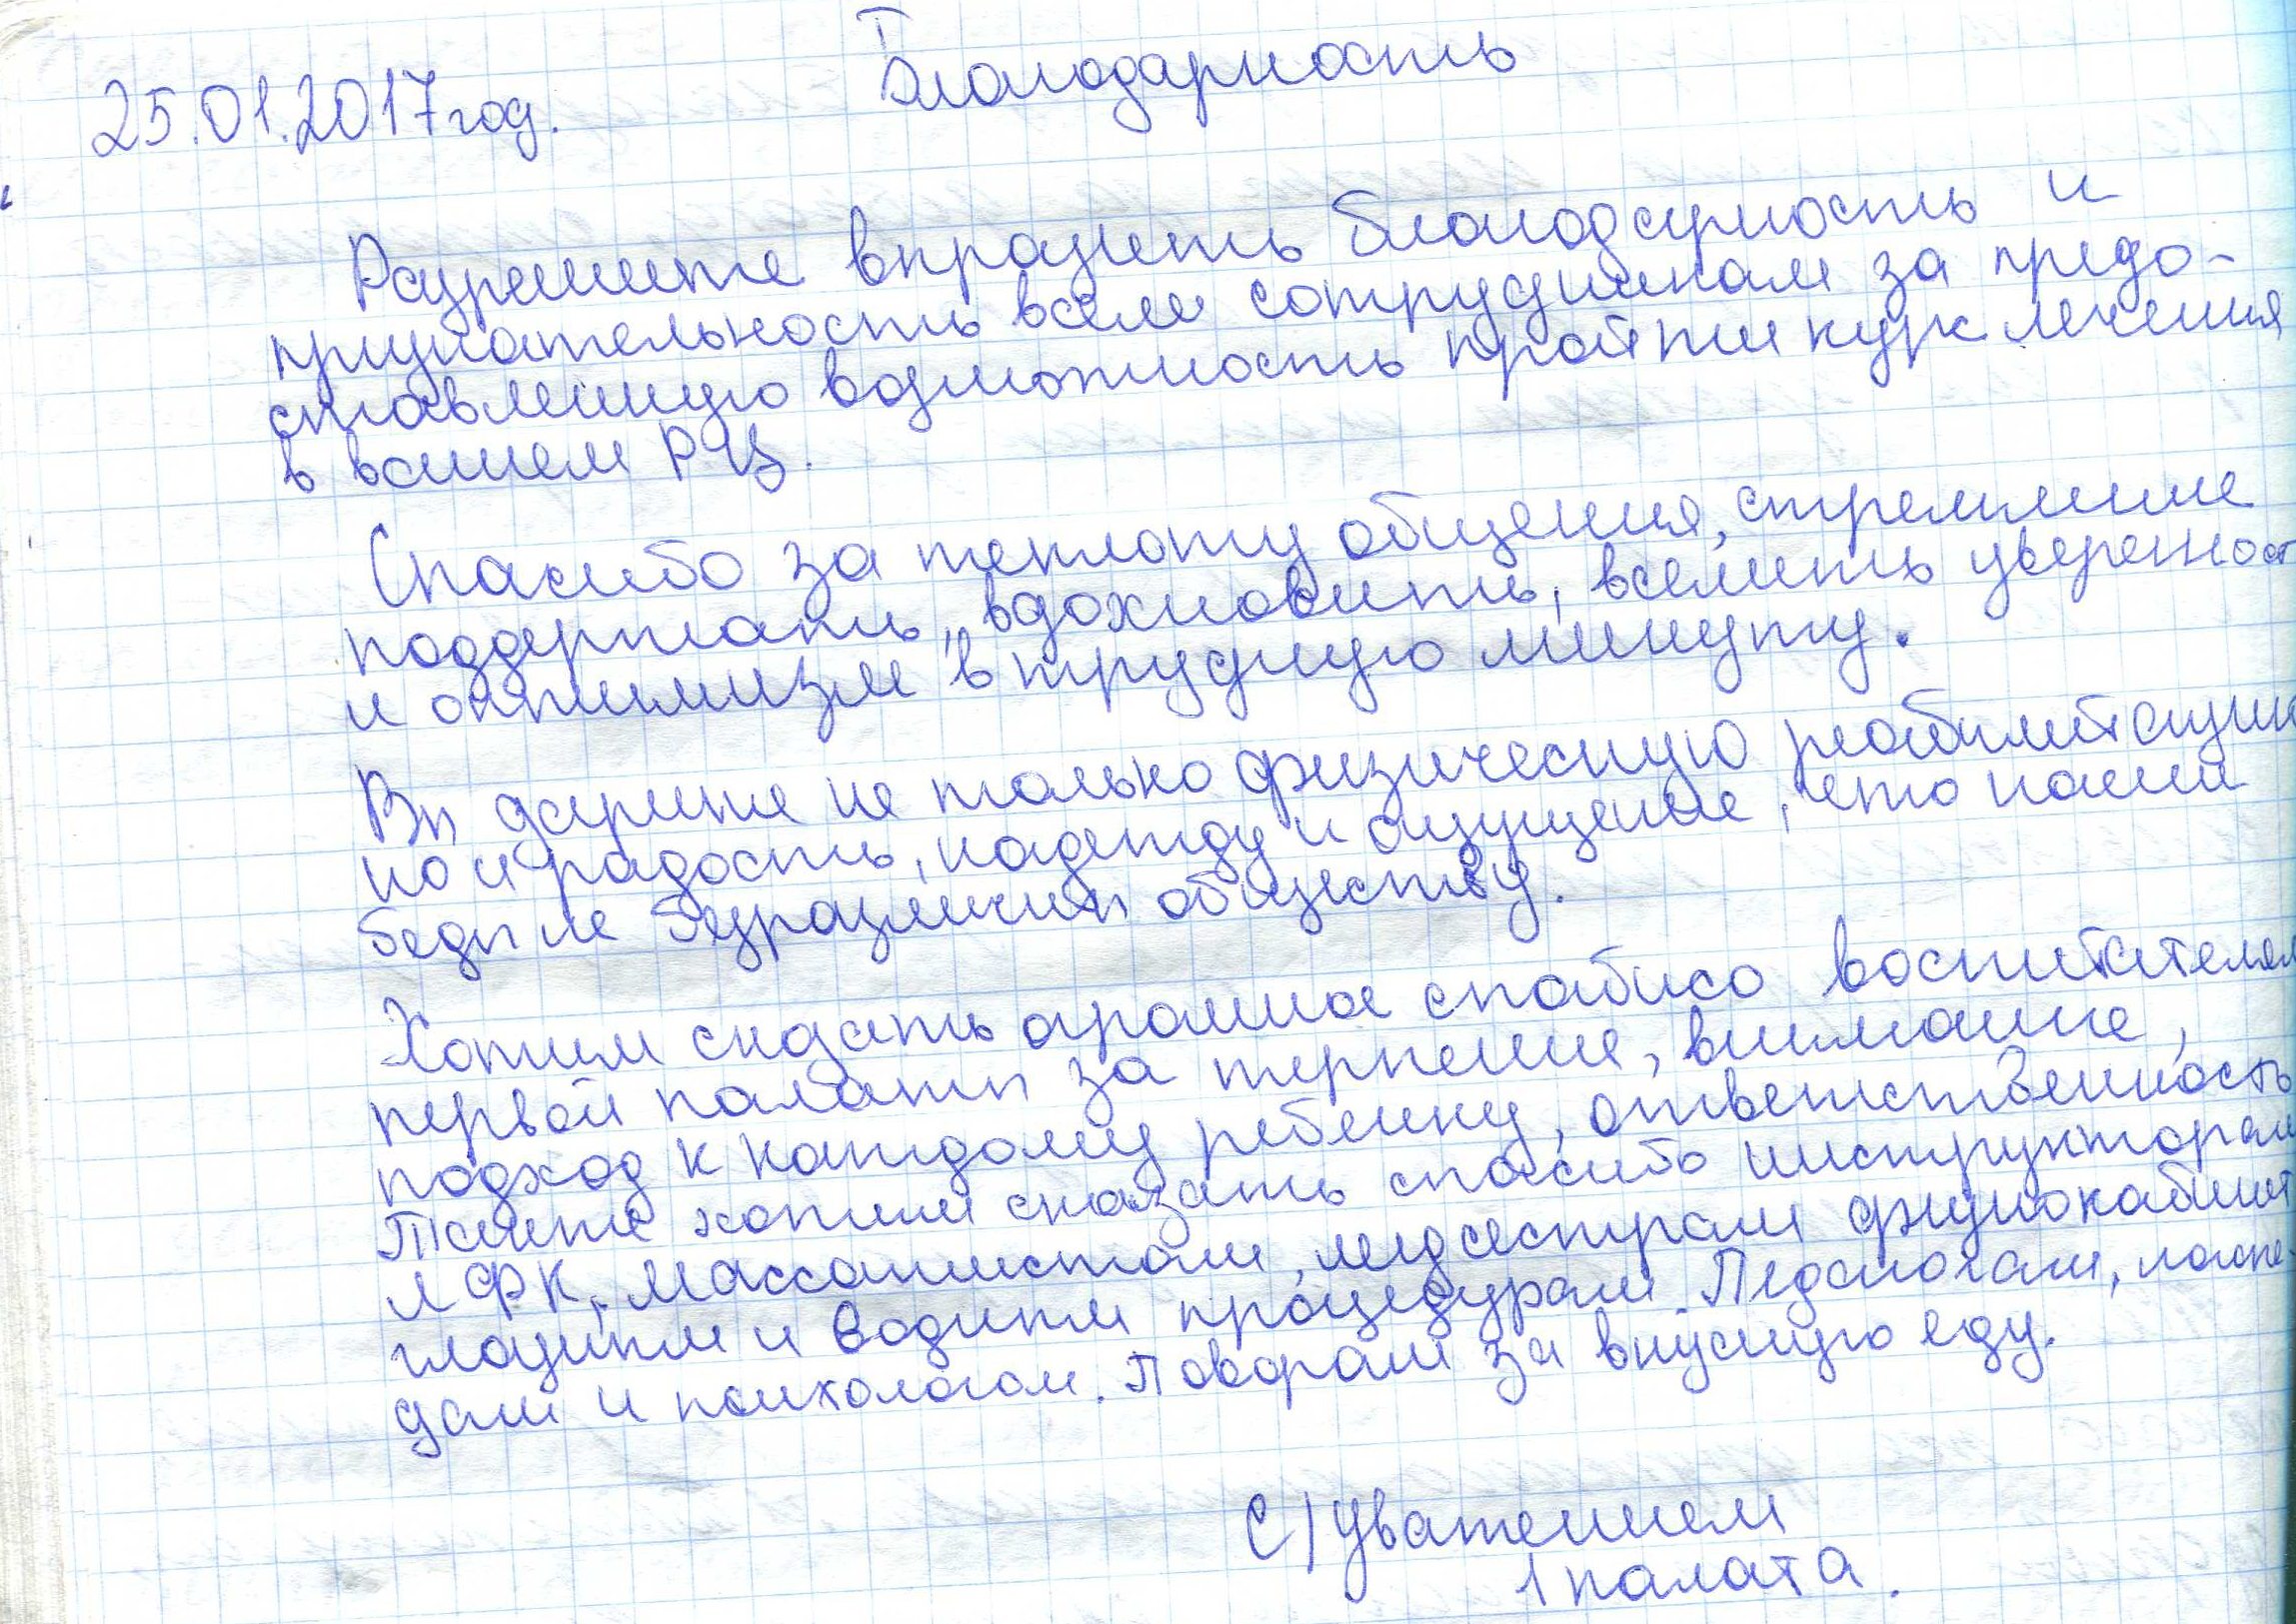 Благодарность
25.01.2017 год.
Разрешите выразить благодарность и
признательность всем сотрудникам за предо-
ставленную возможность пройти курс лечения
в вашем РЦ.
Спасибо за теплоту общения, стремление
поддержать, вдохновить, вселить уверенност
и оптимизм в трудную минуту.
Вы дарите не только физическую реабилитацию
но и радость, надежду и ощущение, что наши
беды не безразличны обществу.
Хотим сказать огромное спабисо воспитателям
первой палаты за терпение, внимание,
подход к каждому ребенку, ответственность
Также хотим сказать спасибо инструкторам
ЛФК, массажистам, медсестрам физиокабинет
глазным и водным процедурам. Педагогам, логопе
дам и психологам. Поварам за вкусную еду.
С/уважением
1 палата.